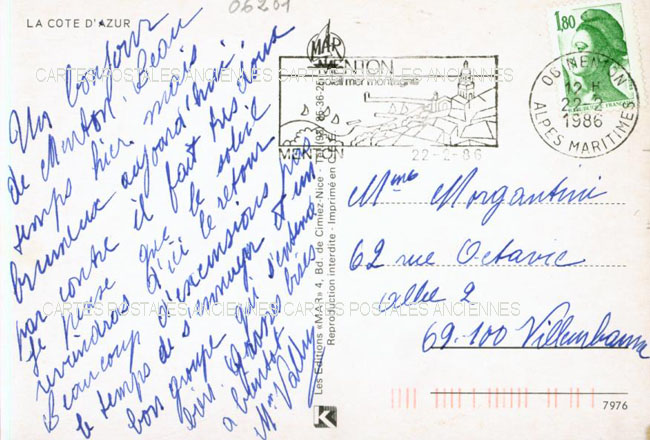 LA COTE D'AZUR
06201
Un bonjour
de Menton. Beau
temps hier mais
brumeux aujourd'hui,
par contre il fait très doux
Je pense que le soleil
reviendra d'ici le retour
Beaucoup d'excursions pas
le temps de s'ennuyer et un
bon groupe qui s'entend
bien. Grosses bises
a bientôt
Mme
MAR
MENTON
soleil mer montagne
MENTON
22-2-86
1,80
06 MENTON
12 H
22-2
1986
ALPES MARITIMES
Mme Morgantini
62 rue Octavie
allée 2
69.100 Villeurbanne
Les Editions «MAR» 4, Bd. de Cimiez-Nice - Tél.
Reproduction interdite - Imprimé en
K
7976
CARTES POSTALES ANCIENNES CARTES POSTALES ANCIENNES
CARTES POSTALES ANCIENNES CARTES POSTALES ANCIENNES